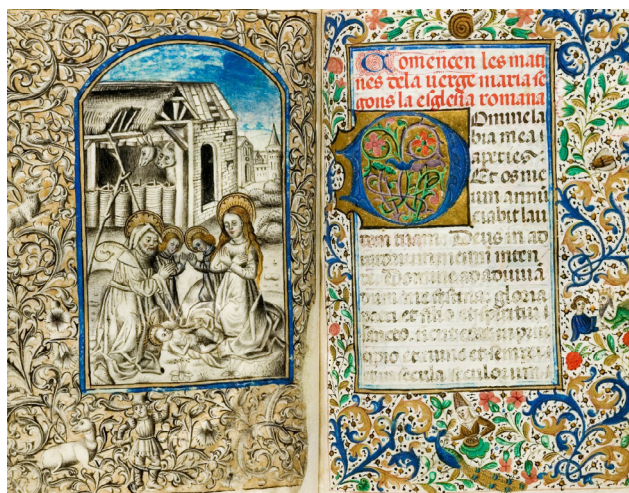 Comencen les mati
nes dela uerge maria se
gons la esglesia romana
Domine la
bia mea
aperies.
Et os me
um annū
ciabit lau
tuam. Deus in ad
meum inten
Domine ad adiuuā
dum me festina. gloria
patri et filio et spiritui
sancto. sicut erat in prin
cipio et nunc et semp
et in secula seculorum